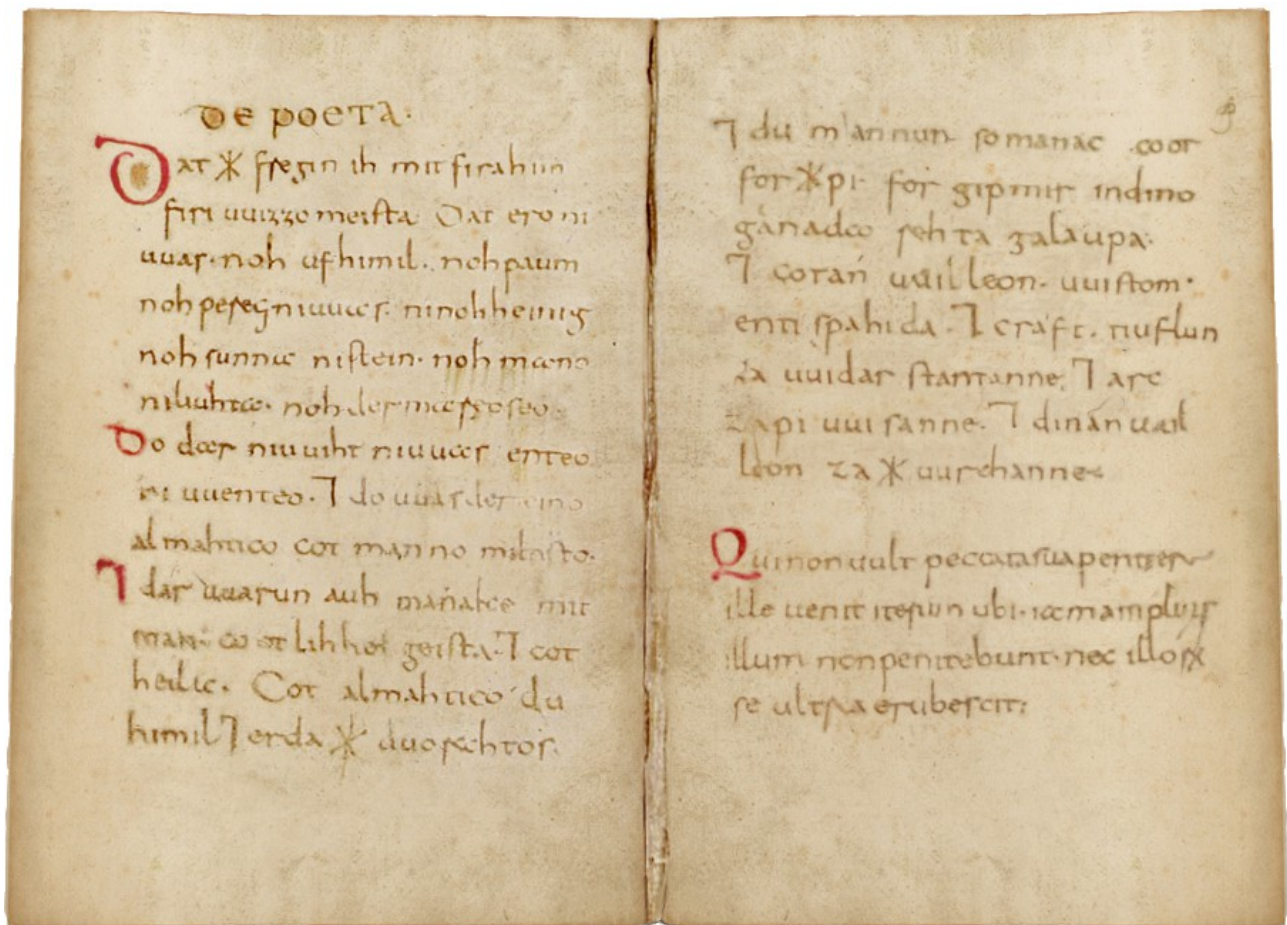 DE POETA.
Dat ᚼ fregin ih mit firahim
firi uuizzo meista. Dat ero ni
uuas. noh ufhimil. noh paum
noh pereg ni uuas. ninohheinig
noh sunna nistein. noh mano
niliuhta. noh der mareo seo.
Do dar niuuiht niuuas enteo
ni uuenteo. ⁊ do uuas der eino
almahtico cot manno miltisto.
⁊ dar uuarun auh manake mit
man. coot lihhe geista. ⁊ cot
heilac. Cot almahtico du
himil ⁊ erda ᚼ uuorahtos.
⁊ du mannun so manac coot
for ᚼ pi. for gipmir indino
ganada rehta galaupa.
⁊ cotan uuilleon. uuistom.
enti spahida. ⁊ craft. tiuflun
za uuidar stantanne. ⁊ arc
zapi uuisanne. ⁊ dinan uuil
leon za ᚼ uurchanne.
Qui non uult peccata sua penitere
ille uenit iterum ubi. iam amplius
illum non penitebunt. nec illorum
se ultra erubescit.